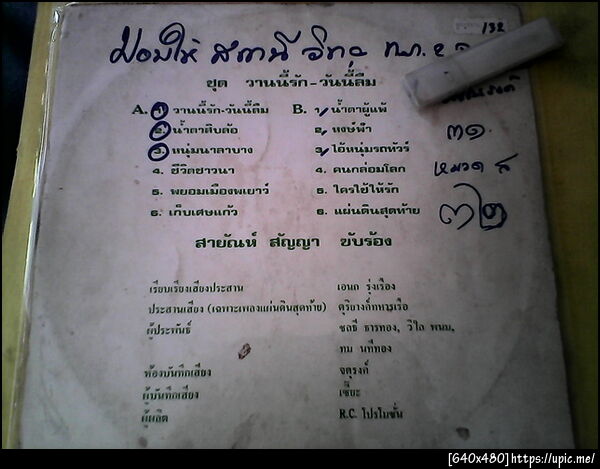 132
มอบให้ สถานี วิทยุ
ชุด วานนี้รัก-วันนี้ลืม
A. 1. วานนี้รัก-วันนี้ลืม B. 1. น้ำตาผู้แพ้
2. น้ำตาสิบล้อ 2. หงษ์ฟ้า
๓๑.
3. หนุ่มนาลาบาง 3. ไอ้หนุ่มรถทัวร์
4. ชีวิตชาวนา 4. คนกล่อมโลก
หมวด ส
5. พยอมเมืองพเยาว์ 5. ใครใช้ให้รัก
6. เก็บเศษแก้ว 6. แผ่นดินสุดท้าย
๓๒
สายัณห์ สัญญา ขับร้อง
เรียบเรียงเสียงประสาน เอนก รุ่งเรือง
ประสานเสียง (เฉพาะเพลงแผ่นดินสุดท้าย) ดุริยางค์ทหารเรือ
ผู้ประพันธ์ ชลธี ธารทอง, วิไล พนม,
ทม นทีทอง
ห้องบันทึกเสียง จตุรงค์
ผู้บันทึกเสียง เซี๊ยะ
ผู้ผลิต R.C. โปรโมชั่น
[640x480]https://upic.me/